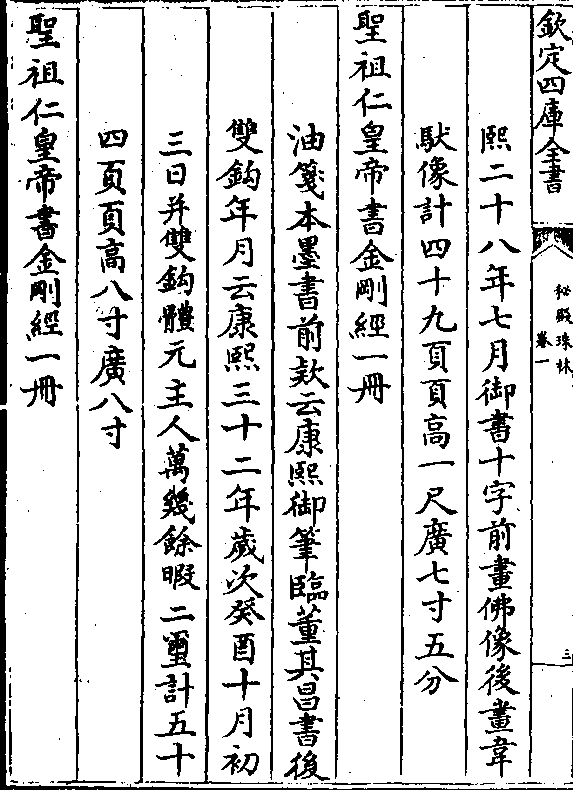 欽定四庫全書
秘殿珠林
卷一
三
熙二十八年七月御書十字前畫佛像後畫韋
馱像計四十九頁頁高一尺廣七寸五分
聖祖仁皇帝書金剛經一冊
油箋本墨書前欵云康熙御筆臨董其昌書後
雙鈎年月云康熙三十二年歲次癸酉十月初
三日并雙鈎體元主人萬幾餘暇二璽計五十
四頁頁高八寸廣八寸
聖祖仁皇帝書金剛經一冊